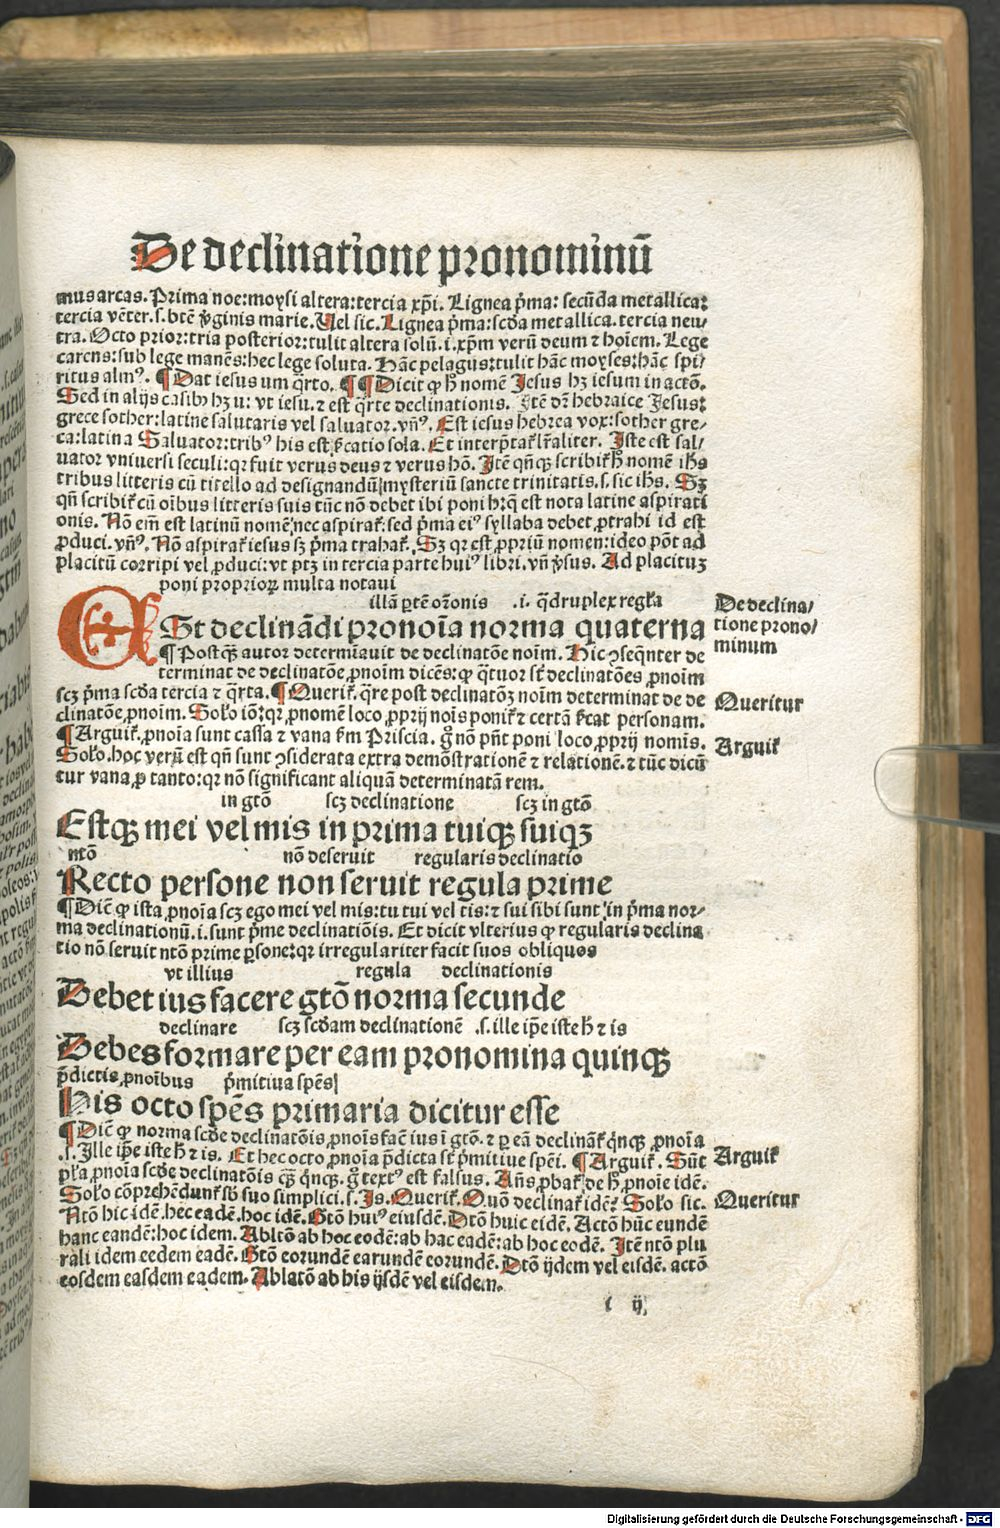 De declinatione pronominū
mus arcas. Prima noe: moysi altera: tercia xp̄i. Lignea p̄ma: secūda metallica:
tercia vēter. s. btē v̓ginis marie. Vel sic. Lignea p̄ma: scḋa metallica. tercia neu/
tra. Octo prior: tria posterior: tulit altera solū. i. xp̄m verū deum ⁊ hoīem. Lege
carens: sub lege manēs: hec lege soluta. Hāc pelagus: tulit hāc moyses: hāc spi/
ritus almꝰ. ¶ Dat iesus um q̄rto. ¶ ¶ Dicit ꝙ h̄ nomē Iesus hꝫ iesum in actō.
Sed in alijs casibꝰ hꝫ u: vt iesu. ⁊ est q̄rte declinationis. Itē dr̄ hebraice Iesus:
grece sother: latine salutaris vel saluator. vn̄ꝰ. Est iesus hebrea vox: sother gre/
ca: latina Saluator: tribꝰ his est scatio sola. Et interp̄tat̄ lr̄aliter. Iste est sal/
uator vniuersi seculi: qꝛ fuit verus deus ⁊ verus hō. Itē qn̄qꝫ scribit̄ h̄ nomē ih̄s
tribus litteris cū titello ad designandū mysteriū sancte trinitatis. s. sic ih̄s. Sꝫ
qn̄ scribit̄ cū oībus litteris suis tūc nō debet ibi poni h: q̄ est nota latine aspirati
onis. Nō eī̄ est latinū nomē, nec aspirat̄: sed p̄ma eiꝰ syllaba debet ꝓtrahi id est
ꝓduci. vn̄ꝰ. Nō aspirat̄ iesus sꝫ p̄ma trahat̄. Sꝫ qꝛ est ꝓpriū nomen: ideo pōt ad
placitū corripi vel ꝓduci: vt ptꝫ in tercia parte huiꝰ libri. vn̄ v̓sus. Ad placituꝫ
poni proprioꝝ multa notaui
illā ꝑtē or̄onis .i. q̄druplex regl̄a
De declina/
tione prono/
minum
ESt declinādi pronoīa norma quaterna
¶ Postqꝫ autor determīauit de declinatōe noīm. Hic ꝯseq̄nter de
terminat de declinatōe ꝓnoīm dicēs: ꝙ q̄tuor st̄ declinatōes ꝓnoīm
scꝫ p̄ma scḋa tercia ⁊ q̄rta. ¶ Querit̄. q̄re post declinatōꝫ noīm determinat de de
clinatōe ꝓnoīm. Solo̓ iō: qꝛ ꝓnomē loco ꝓprij noīs ponit̄ ⁊ certā st̄cat personam.
Queritur
¶ Arguit̄. ꝓnoīa sunt cassa ⁊ vana f̄m Priscia. g̊ nō pn̄t poni loco ꝓprij nomīs.
Arguit̄
Solo̓. hoc verū est qn̄ sunt ꝯsiderata extra demōstrationē ⁊ relationē. ⁊ tūc dicū
tur vana ꝓ tanto: qꝛ nō significant aliquā determinatā rem.
in gtō scꝫ declinatione scꝫ in gtō
Estqꝫ mei vel mis in prima tuiqꝫ suiqꝫ
ntō nō deseruit regularis declinatio
Recto persone non seruit regula prime
¶ Dic̄ ꝙ ista ꝓnoīa scꝫ ego mei vel mis: tu tui vel tis: ⁊ sui sibi sunt in p̄ma nor/
ma declinationū. i. sunt p̄me declinatiōis. Et dicit vlterius ꝙ regularis declina
tio nō seruit ntō prime ꝑsone: qꝛ irregulariter facit suos obliquos
vt illius regula declinationis
Debet ius facere gtō norma secunde
declinare scꝫ scḋam declinationē .s. ille ip̄e iste h̄ ⁊ is
Debes formare per eam pronomina quinqꝫ
p̄dictis ꝓnoībus p̄mitiua spēs
His octo spēs primaria dicitur esse
¶ Dic̄ ꝙ norma scḋe declinatōis ꝓnoīs fac̄ ius ī gtō. ⁊ ꝑ eā declināt̄ q̄nqꝫ ꝓnoīa
.s. Ille ip̄e iste h̄ ⁊ is. Et hec octo ꝓnoīa p̄dicta st̄ p̄mitiue spēi. ¶ Arguit̄. Sūt
Arguit̄
pl̄a ꝓnoīa scḋe declinatōis cꝙ̄ q̄nqꝫ. g̊ textꝰ est falsus. Añs ꝓbat̄ de h̄ ꝓnoīe idē.
Solo̓ cōprehēdunt̄ sb̄ suo simplici. s. Is. Querit̄. Quō declinat̄ idē? Solo̓ sic.
Queritur
Ntō hic idē. hec eadē. hoc idē. Gtō huiꝰ eiusdē. Dtō huic eidē. Actō hūc eundē
hanc eandē: hoc idem. Abltō ab hoc eodē: ab hac eadē: ab hoc eodē. Itē ntō plu
rali idem eedem eadē. Gtō eorundē earundē eorundē. Dtō ijdem vel eisdē. actō
eosdem easdem eadem. Ablatō ab his ijsdē vel eisdem.
i ij
Digitalisierung gefördert durch die Deutsche Forschungsgemeinschaft - DFG